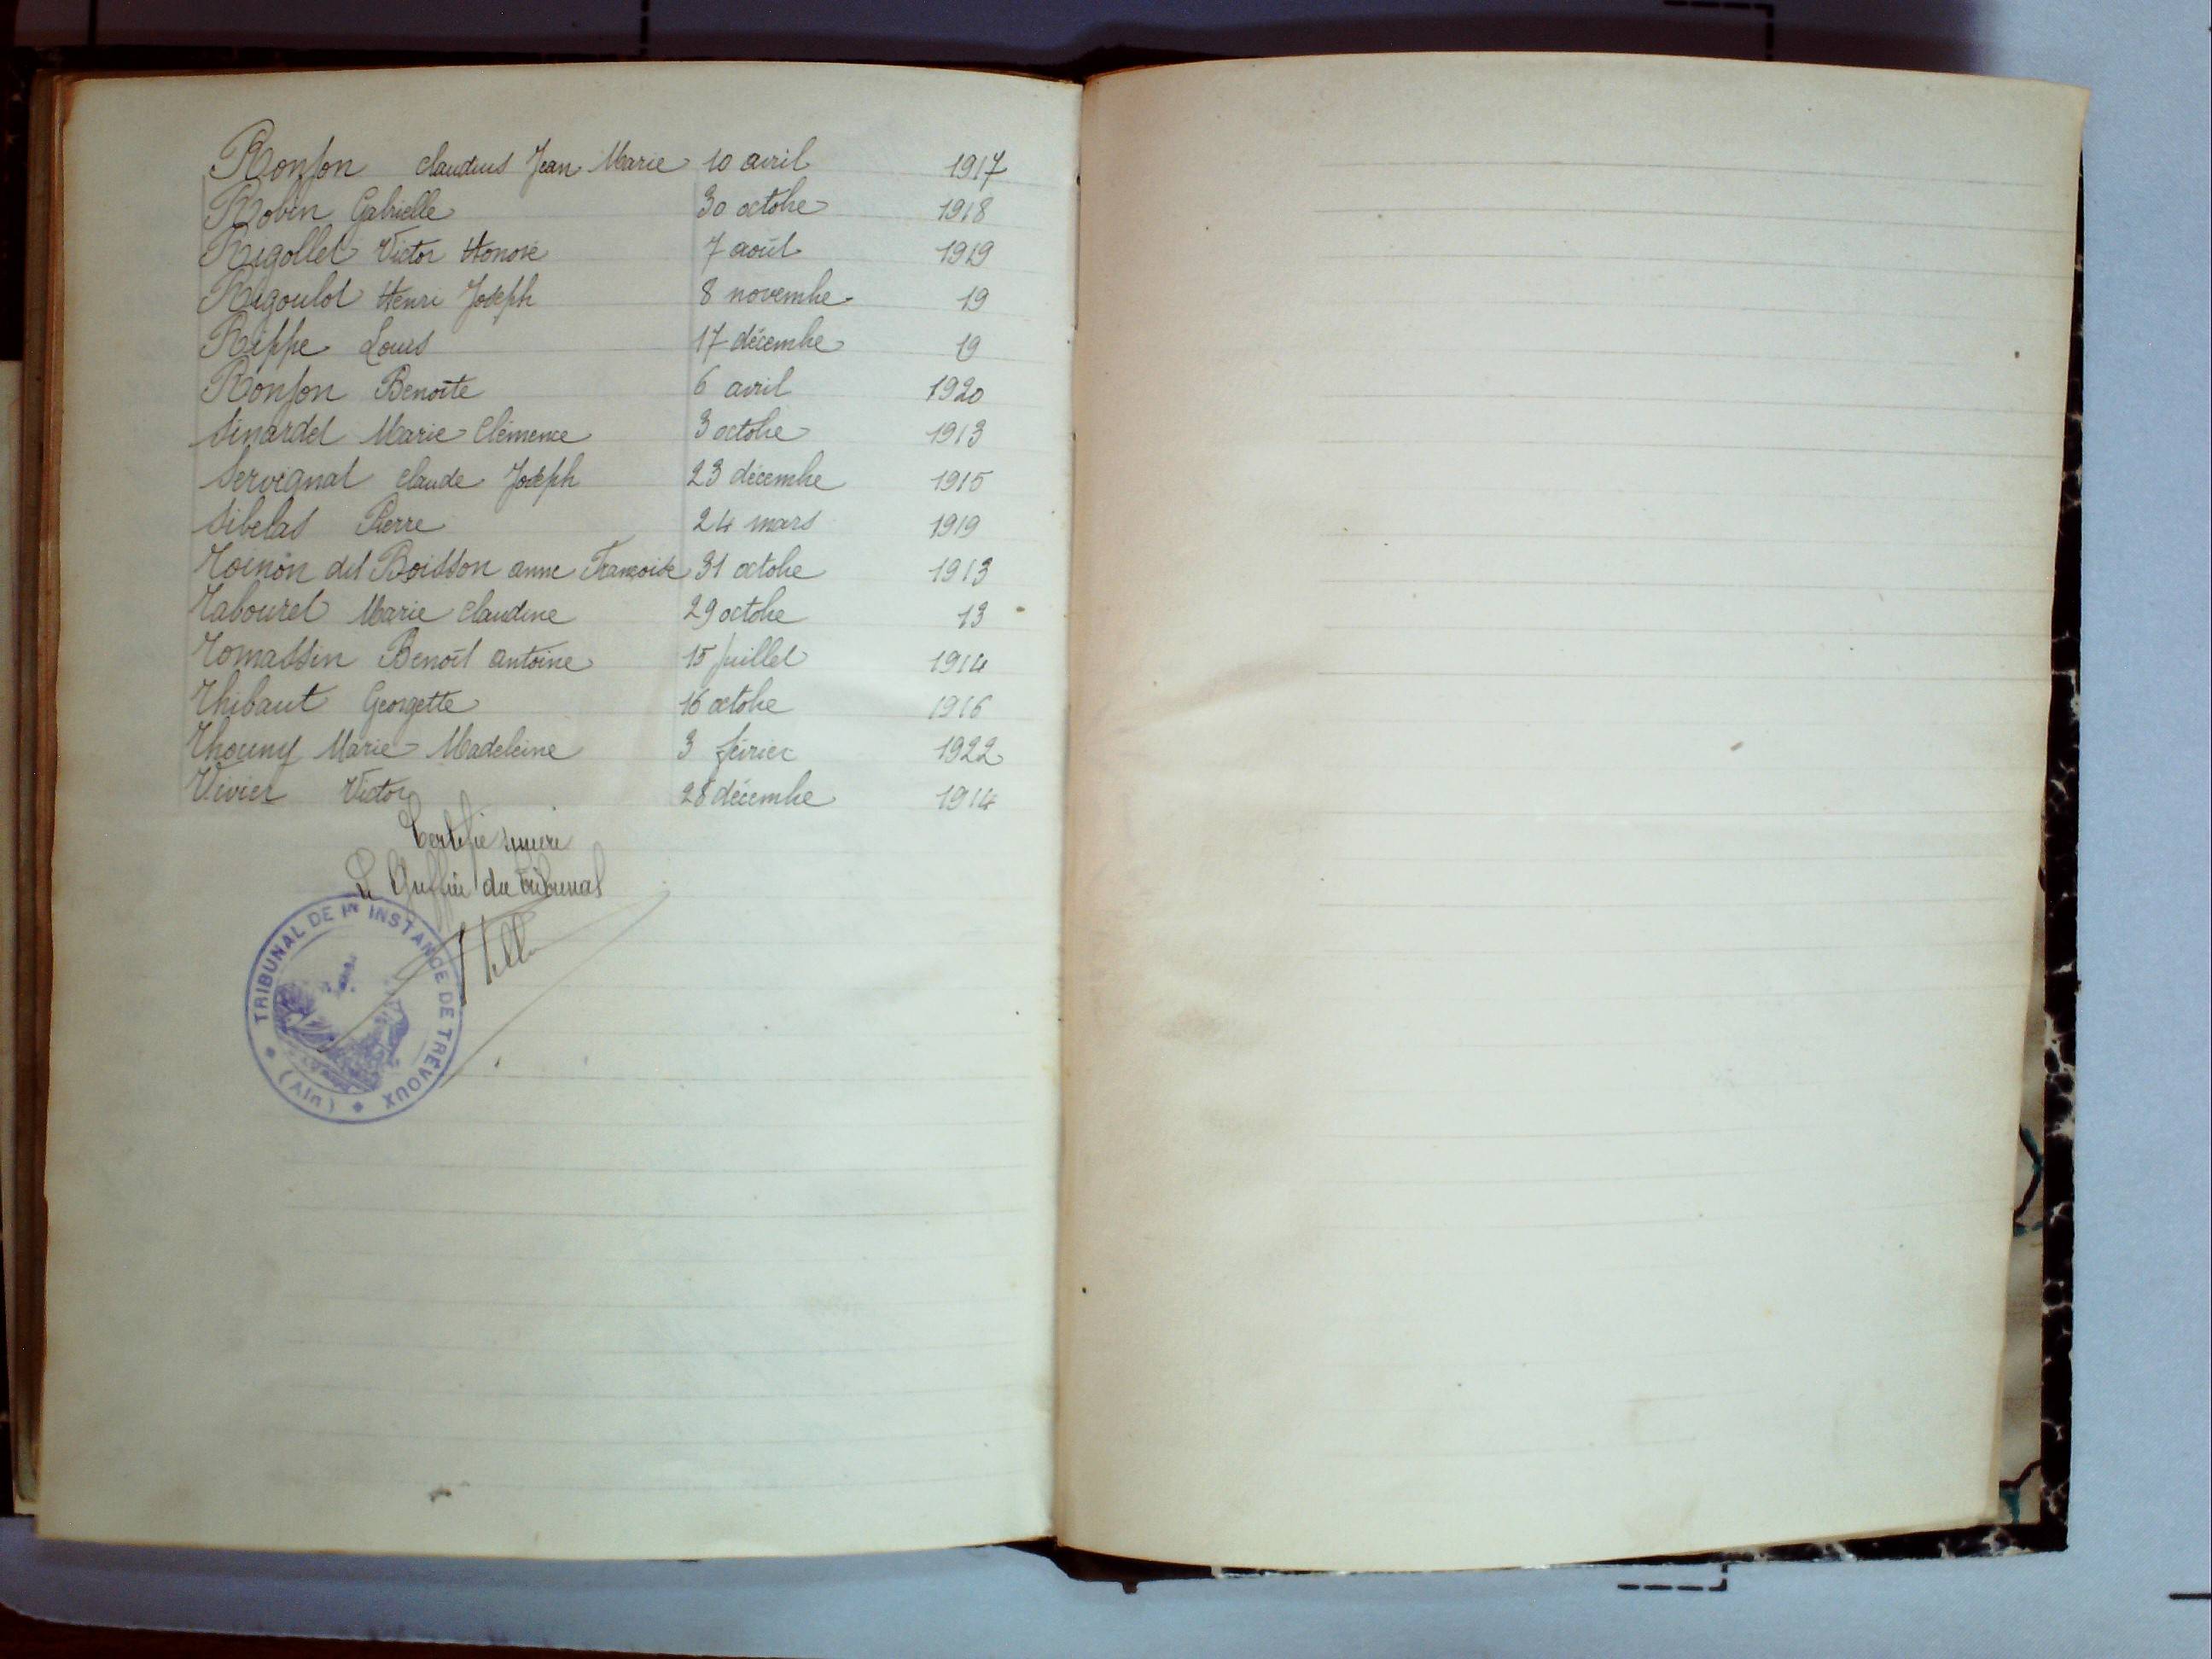 Ronjon Claudius Jean Marie 10 avril 1917
Robin Gabrielle 30 octobre 1918
Rigollet Victor Honoré 7 août 1919
Rigoulot Henri Joseph 8 novembre 19
Rippe Louis 17 décembre 19
Ronjon Benoîte 6 avril 1920
Sinardet Marie Clémence 3 octobre 1913
Servignat Claude Joseph 23 décembre 1915
Sibelas Pierre 24 mars 1919
Toinon dit Boisson anne Françoise 31 octobre 1913
Tabouret Marie Claudine 29 octobre 13
Tomassin Benoît antoine 15 juillet 1914
Thibaut Georgette 16 octobre 1916
Thouny Marie Madeleine 3 février 1922
Vivier Victor 28 décembre 1914
Certifié sincère
Le Greffier du Tribunal
TRIBUNAL DE 1re INSTANCE DE TRÉVOUX
(AIN)